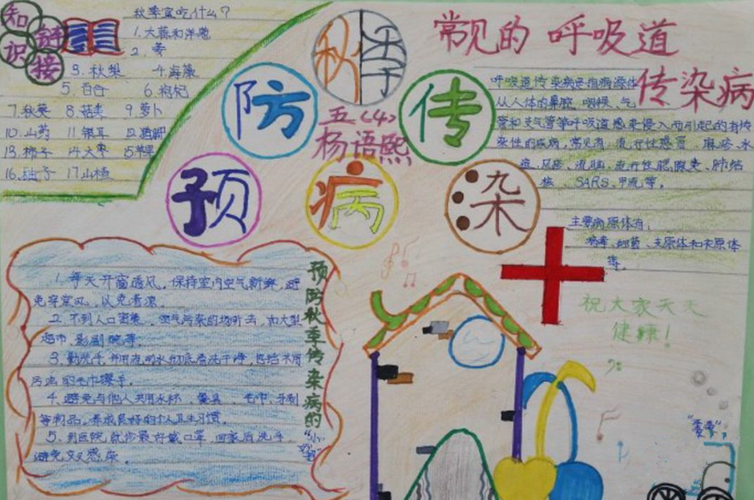 知识
链接
秋季宜吃什么?
1.大蒜和洋葱
2.枣
3.秋梨 4.海藻
5.百合 6.枸杞
7.秋葵 8.菇类 9.萝卜
10.山药 11.银耳
13.柿子 14.大枣 15.苹果
16.柚子 17.山楂
预防秋季传染病
五<4>
杨语熙
常见的呼吸道
传染病
呼吸道传染病是指病原体
从人体的鼻腔、咽喉、气
管和支气管等呼吸道感染侵入而引起的有传
染性的疾病,常见有:流行性感冒、麻疹、水
痘、风疹、流脑、流行性腮腺炎、肺结
核、SARS、甲流等。
主要病原体有:
病毒、细菌、支原体和衣原体
等。
祝大家天天
健康!
预防秋季传染病的
1.每天开窗通风,保持室内空气新鲜,避
免穿堂风,以免着凉。
2.不到人口密集、空气污染的场所去,如大型
超市、影剧院等。
3.勤洗手,并用流动水彻底清洗干净,包括不用
污浊的毛巾擦手。
4.避免与他人共用水杯、餐具、毛巾、牙刷
等制品,养成良好的个人卫生习惯。
5.到医院就诊最好戴口罩,回家后洗手,
避免交叉感染。